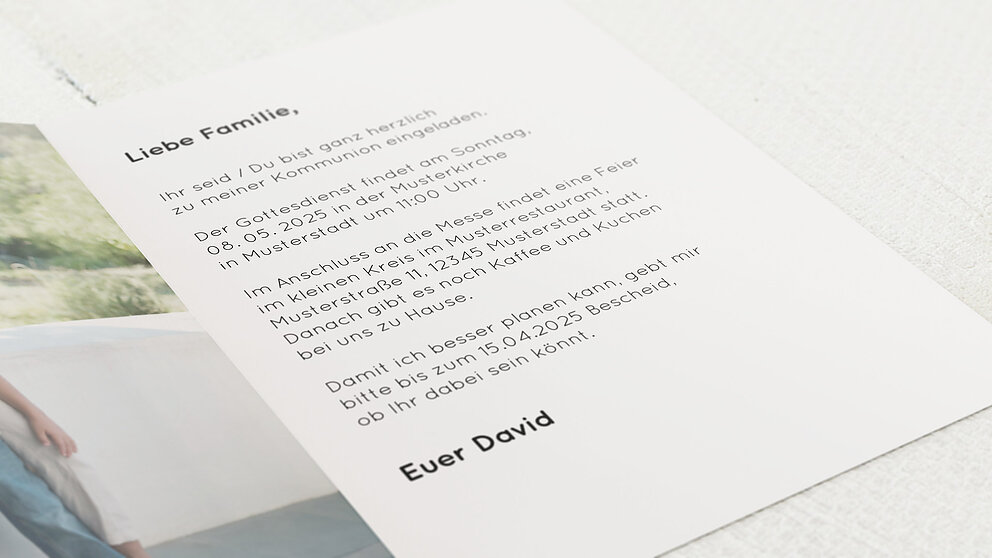 Liebe Familie,
Ihr seid / Du bist ganz herzlich
zu meiner Kommunion eingeladen.
Der Gottesdienst findet am Sonntag,
08.05.2025 in der Musterkirche
in Musterstadt um 11:00 Uhr.
Im Anschluss an die Messe findet eine Feier
im kleinen Kreis im Musterrestaurant,
Musterstraße 11, 12345 Musterstadt statt.
Danach gibt es noch Kaffee und Kuchen
bei uns zu Hause.
Damit ich besser planen kann, gebt mir
bitte bis zum 15.04.2025 Bescheid,
ob Ihr dabei sein könnt.
Euer David